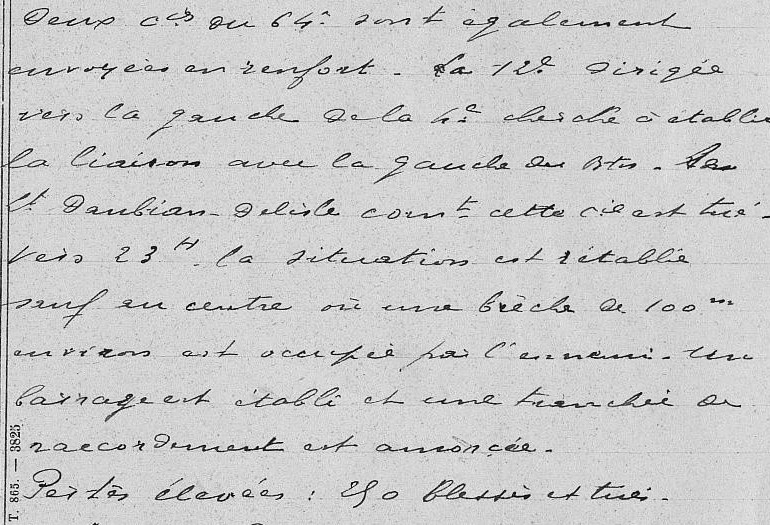 Deux Cies du 64e sont également
envoyées en renfort. La 12e dirigée
vers la gauche de la 4e cherche à établir
la liaison avec la gauche du Btn. Le
Lt Daubian-Delisle comt cette Cie est tué.
Vers 23H la situation est rétablie
sauf au centre où une brèche de 100m
environ est occupée par l'ennemi. Un
barrage est établi et une tranchée de
raccordement est amorcée.
Pertes élevées : 250 blessés et tués.
T. 865. — 3825